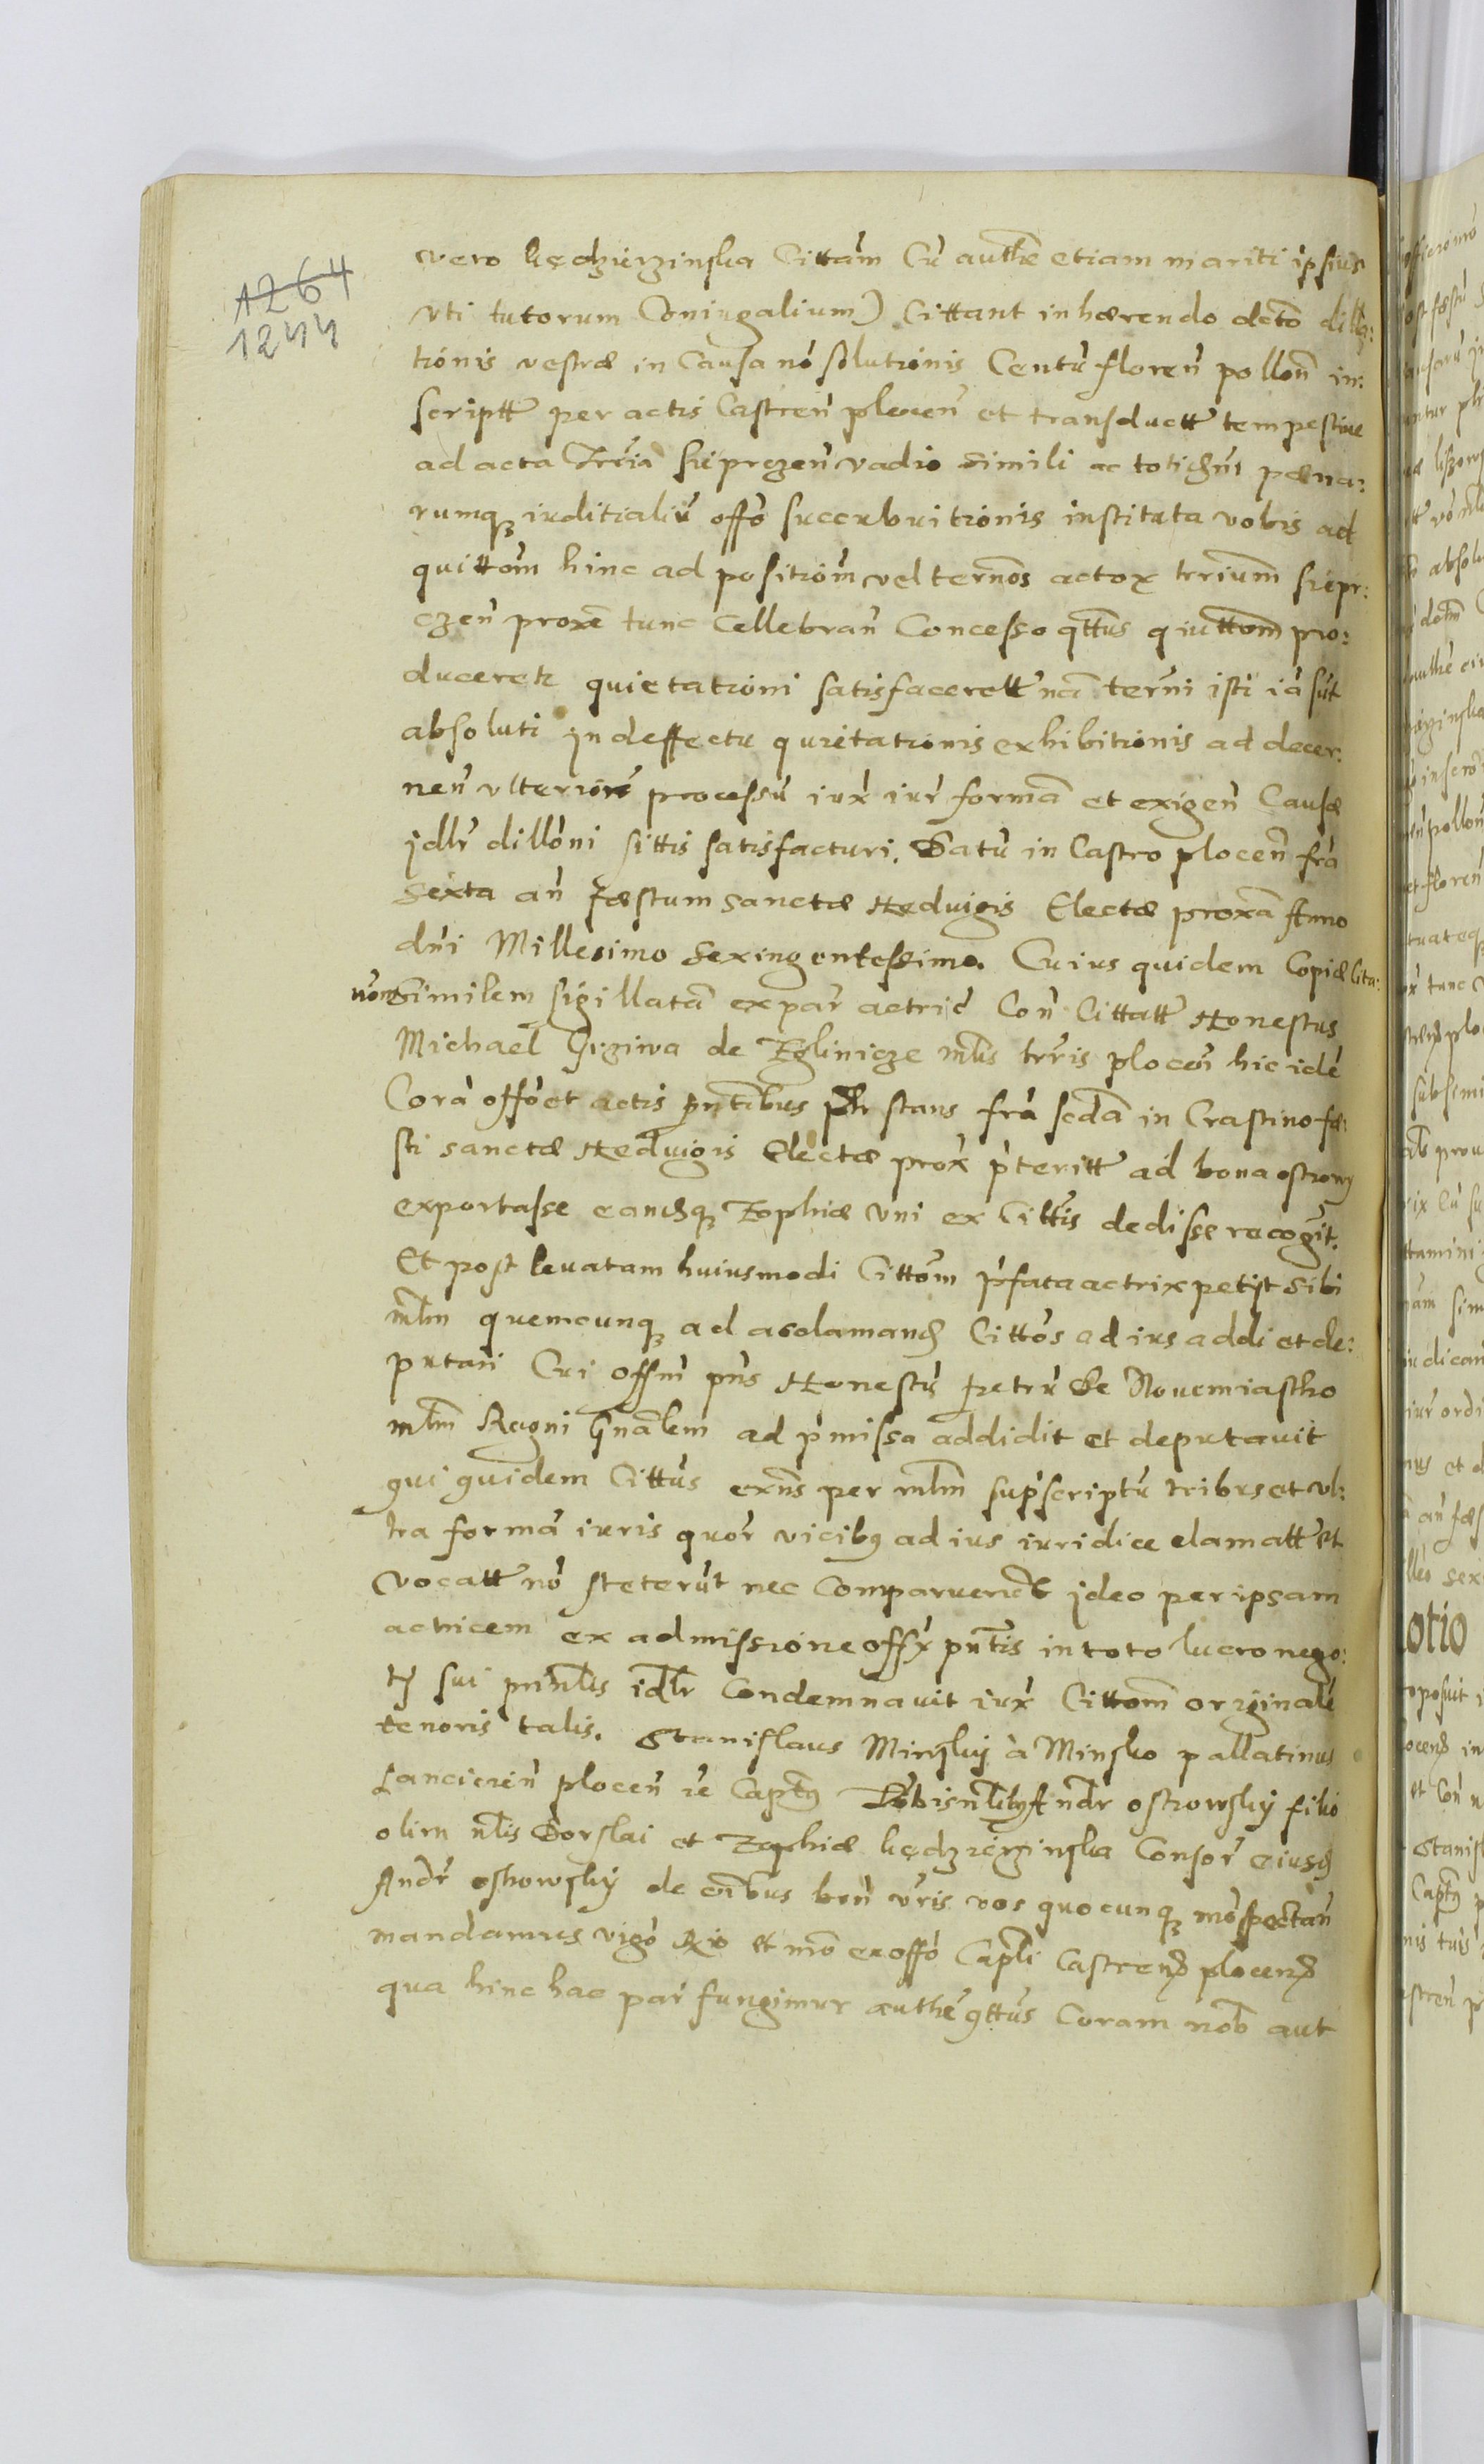 1264
1244
vero kędzierzinska Cittam Cũ authẽ etiam mariti ipsius
vti tutorum Coniugalium) Cittant inhærendo dcto dilla:
tionis vestræ in Causa nõ solutionis Centũ florẽn pollon in:
scriptt per actis Castren plocen et transductt tempestiue
ad acta trria sieprczen vadio simili ac totidm pæna:
rumq̃ iuditialiũ offo succubuitionis instituta vobis ad
quittom hinc ad positiom vel termos actox trrium siepr:
czen proxe tunc Cellebran Concesso qttus quittom pro:
ducerett quietationi satisfacerett na termi isti ia sũt
absoluti in deffectu quietationis exhibitionis ad decer:
nen vlteriore processũ iux iur forma et exigen Causæ
idlr dilloni sittis satisfacturi. Datũ in Castro plocen fra
Sexta an fæstum sanctæ Heduigis Electæ proxa Anno
dni Millesimo Sexingentessimo. Cuius quidem Copiæ lita:
nom Similem sigillata ex par actric Con Cittatt Honestus
Michael Giziwa de Zglinicze mlis trris plocen hic ide
Corã offo et actis pntibus ptr stans fra scda in Crastino fæ:
sti sanctæ Heduigis Electæ prox pteritt ad bona ostrowy
exportasse eandq̃ Zophiæ vni ex Cittis dedisse recogit.
Et post leuatam huiusmodi Cittom pfata actrix petyt sibi
mlm quemcunq̃ ad acclamand Cittos ad ius addi et de:
putari Cui offm pns Honestũ petrũ de Nouemiastho
mlm Regni Gnalem ad pmissa addidit et deputauit
qui quidem Cittus exns per mlm supscriptũ tribus et vl:
tra formã iuris quor vicibq ad ius iuridice clamatt et
vocatt nõ steterũt nec Comparuerũt ideo per ipsam
actricem ex admissione offy pntis in toto lucro nego:
ty sui prinlis idlr Condemnauit iux Cittom originale
tenoris talis. Stanislaus Minsky à Minsko pallatinus
Lancicien plocen re Captq Vobis nlibq Andr ostrowsky filio
olim nlis Dorslai et Zophiæ kędzierzinska Consor eiusd
Andr ostrowsky de oibus bon vris vos quocunq̃ mo spectan
mandamus vigo Rio et mo ex offo Caplli Castrens plocens
qua hinc hac par fungimur authe qttus Coram nob aut